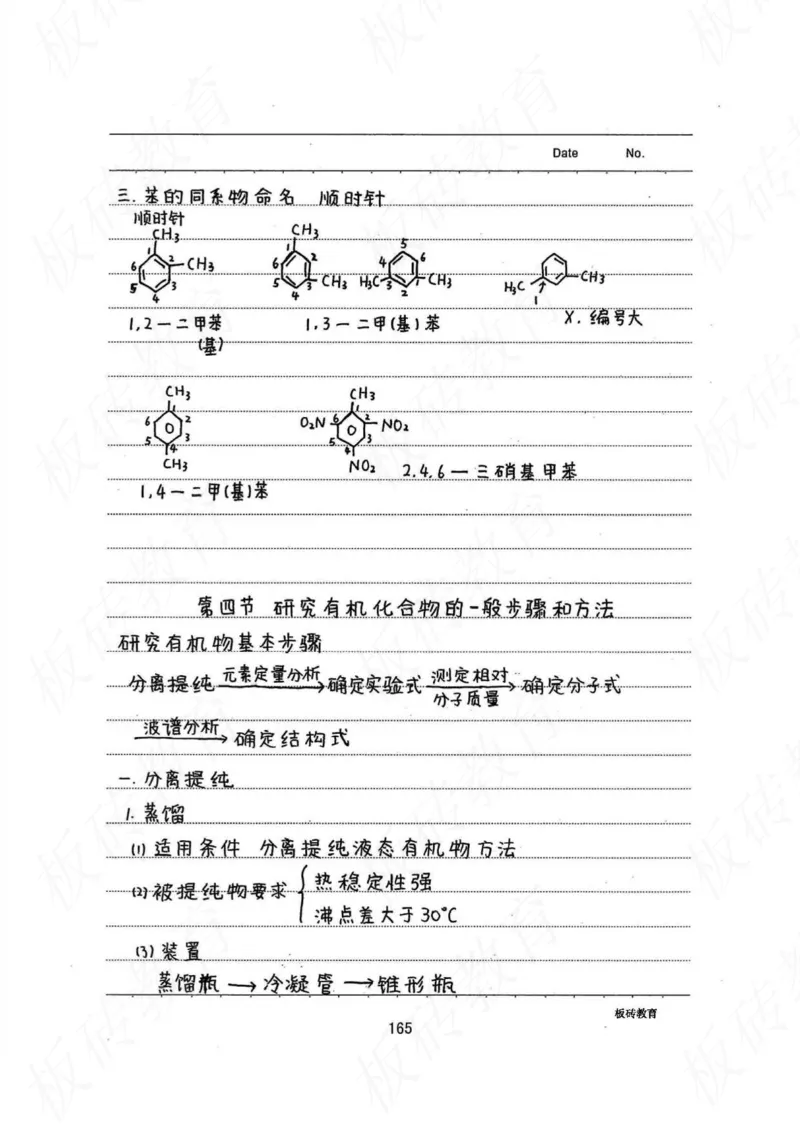 Date No.
三.苯的同系物命名 顺时针
顺时针
CH3
1 2 3 4 5 6 CH3
1,2一二甲苯
(基)
CH3
1 2 3 4 5 6 CH3
5
4 6
H3C 3 2 1 CH3
1,3一二甲(基)苯
H3C 1 CH3
X.编号大
CH3
1 2 3 4 5 6
CH3
1,4一二甲(基)苯
CH3
O2N 6 1 2 NO2
5 4 3
NO2
2,4,6一三硝基甲苯
第四节 研究有机化合物的一般步骤和方法
研究有机物基本步骤
分离提纯 元素定量分析→确定实验式 测定相对分子质量→确定分子式
波谱分析→确定结构式
一.分离提纯
1.蒸馏
(1)适用条件 分离提纯液态有机物方法
(2)被提纯物要求{热稳定性强
沸点差大于30°C
(3)装置
蒸馏瓶→冷凝管→锥形瓶
板砖教育
165